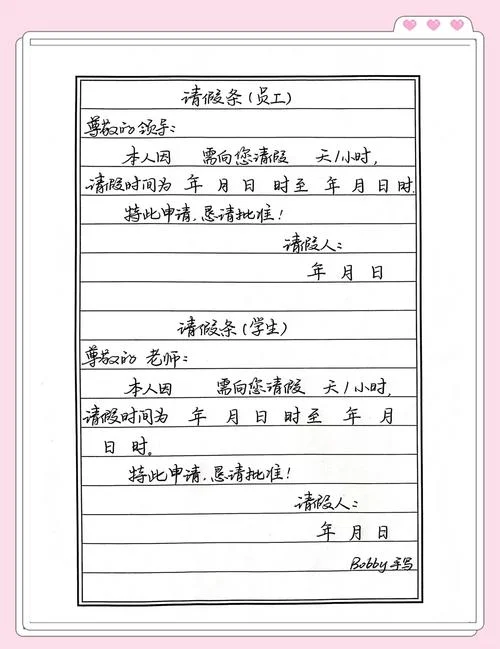 请假条(员工)
尊敬的领导:
本人因 需向您请假 天/小时,
请假时间为 年 月 日 时至 年 月 日 时.
特此申请,恳请批准!
请假人:
年 月 日
请假条(学生)
尊敬的 老师:
本人因 需向您请假 天/小时,
请假时间为 年 月 日 时至 年 月
日 时。
特此申请,恳请批准!
请假人:
年 月 日
Bobby手写